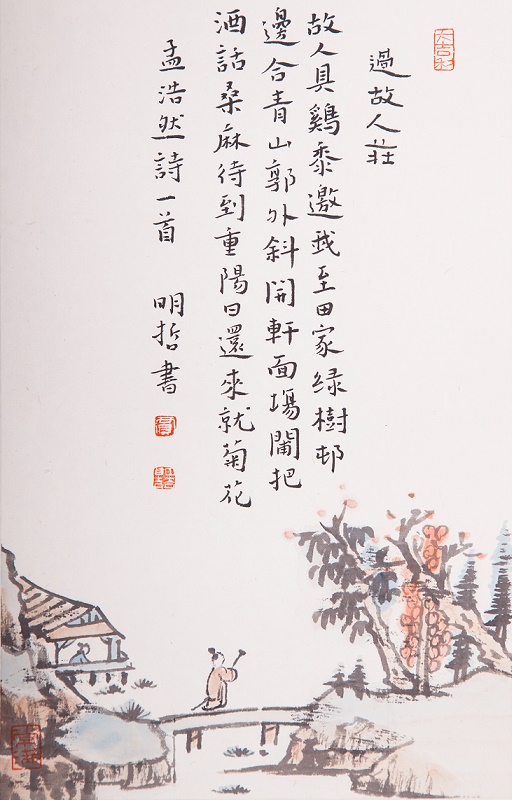 過故人莊
故人具鷄黍邀我至田家綠樹邨
邊合青山郭外斜開軒面場闌把
酒話桑麻待到重陽日還來就菊花
孟浩然詩一首 明哲書